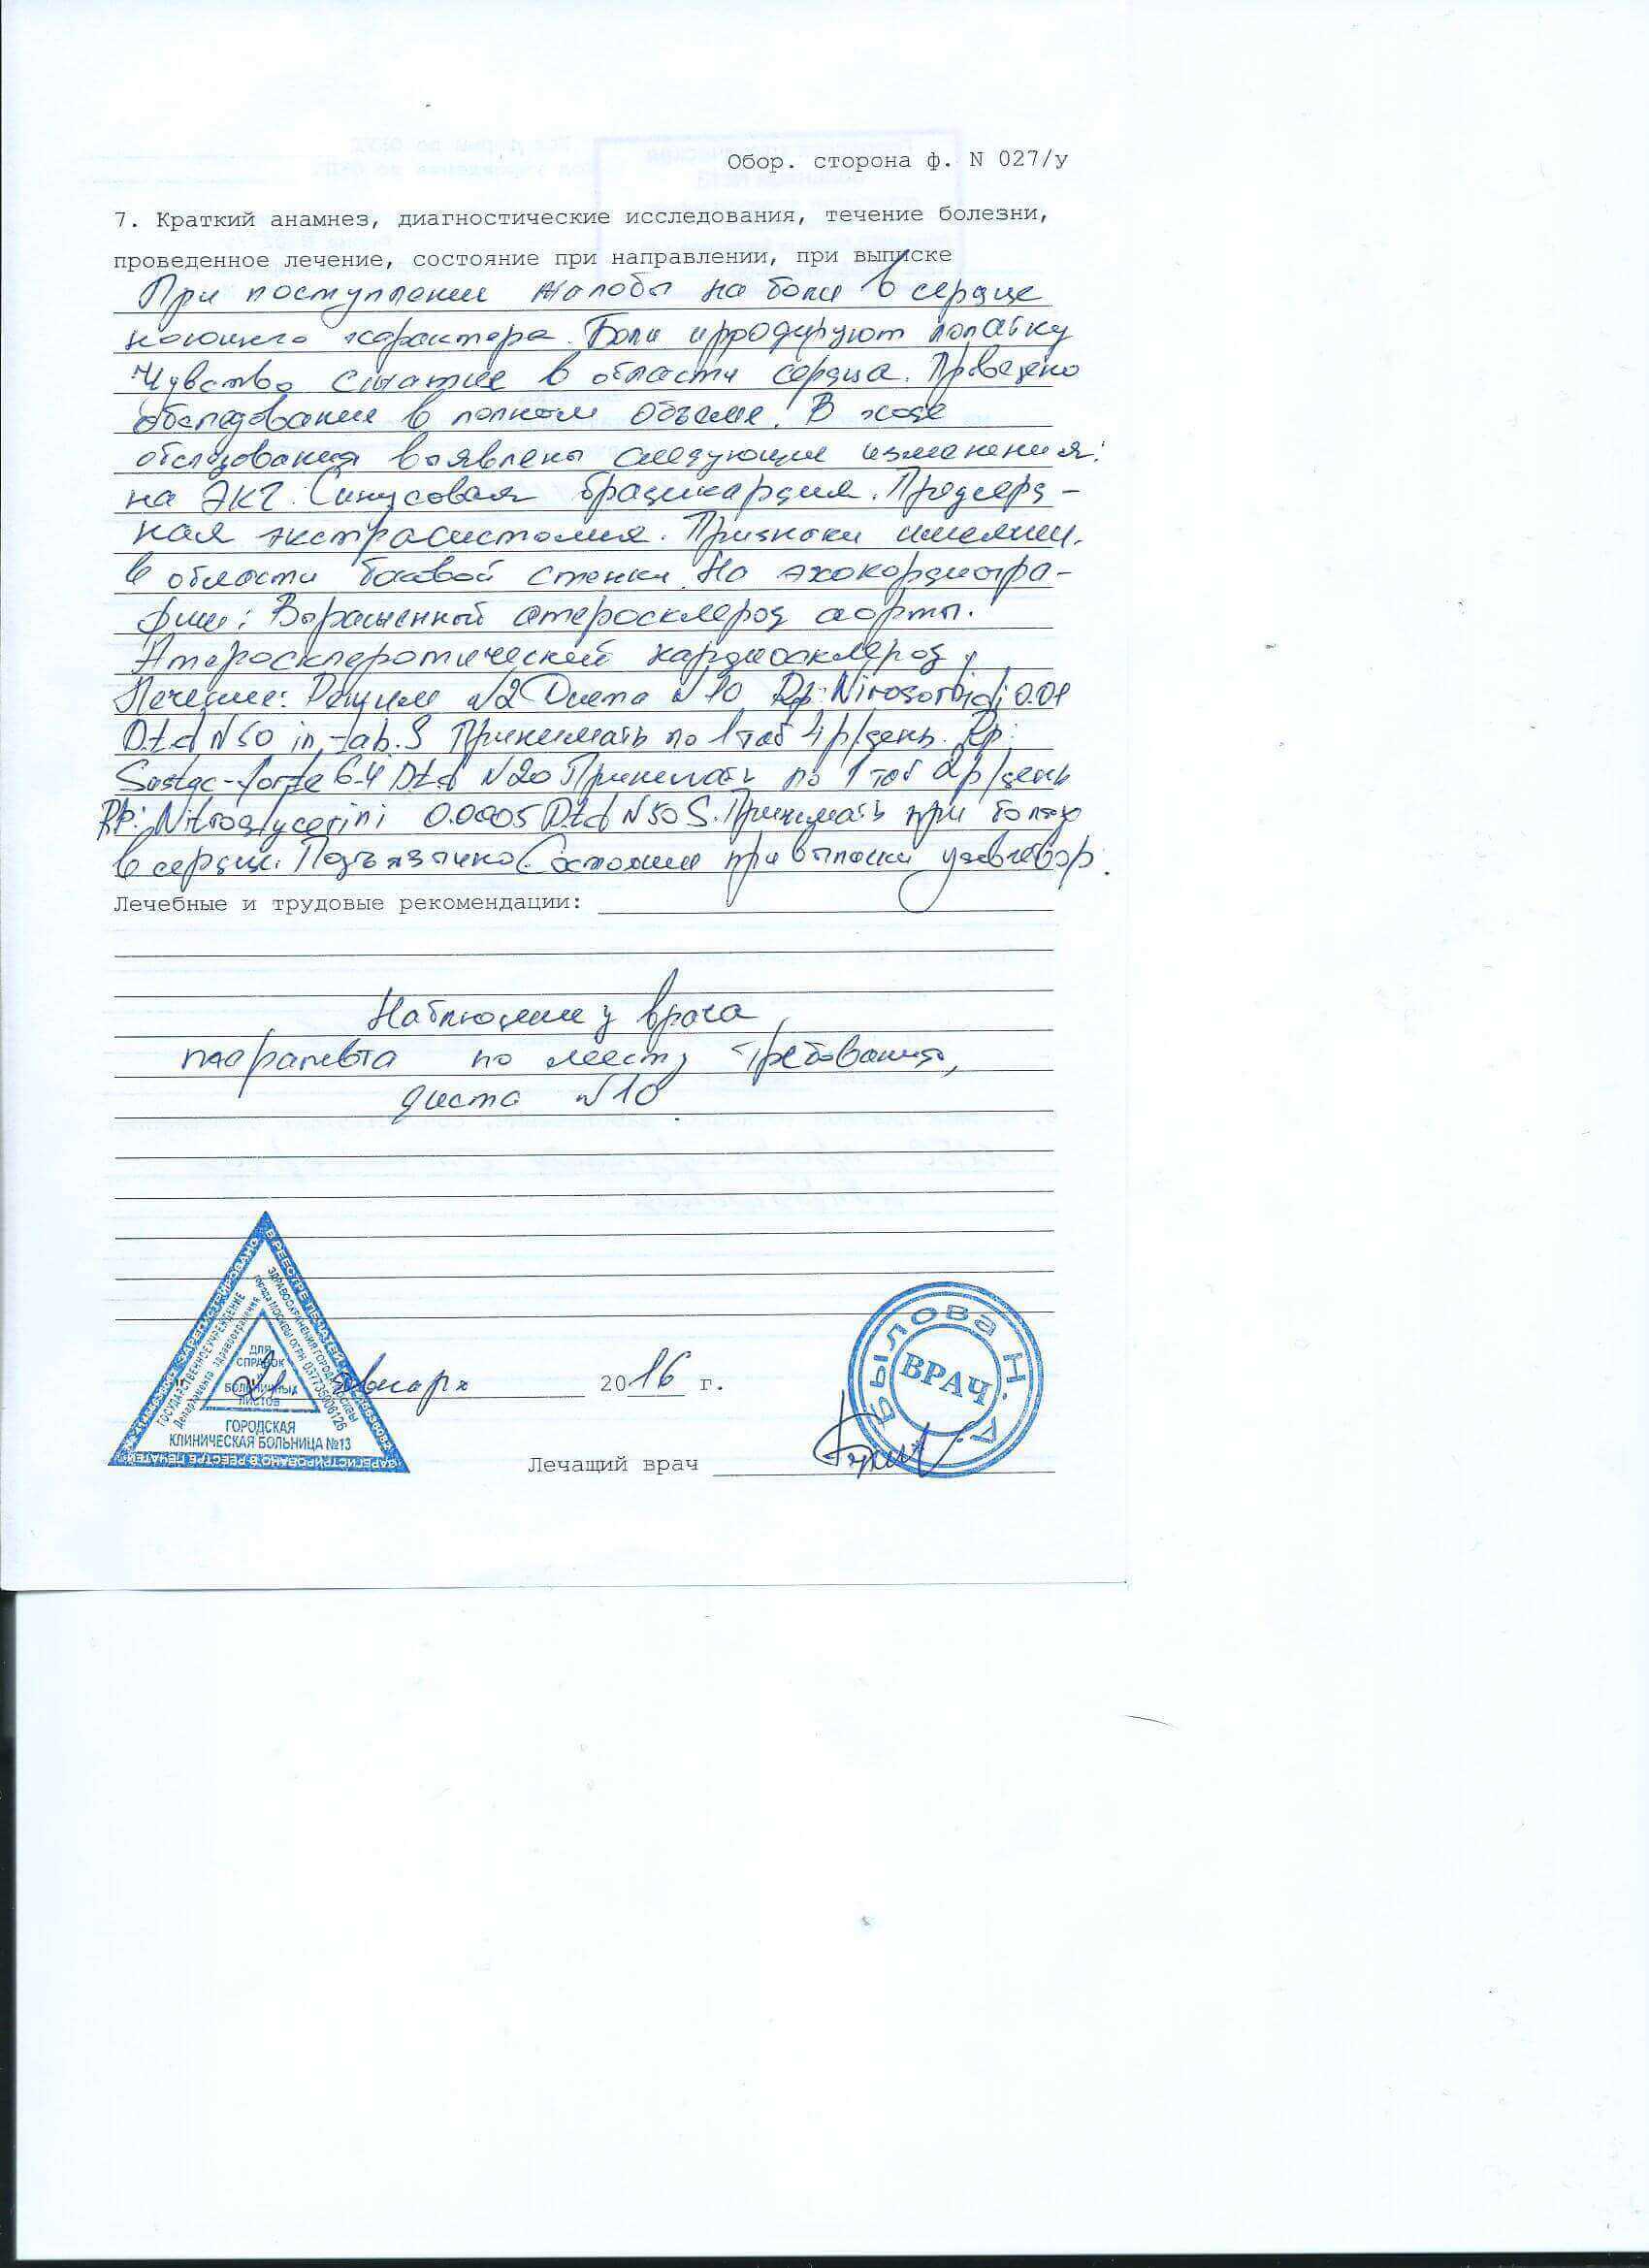 Обор. сторона ф. N 027/у
7. Краткий анамнез, диагностические исследования, течение болезни,
проведенное лечение, состояние при направлении, при выписке
При поступлении жалобы на боли в сердце
ноющего характера. Боли иррадируют лопатку
Чувство сжатие в области сердца. Проведено
обследование в полном объеме. В ходе
обследования выявлены следующие изменения:
на ЭКГ: Синусовая брадикардия. Предсерд-
ная экстрасистолия. Признаки ишемии.
в области боковой стенки. На эхокардиогра-
фии: Выраженный атеросклероз аорты.
Атеросклеротический кардиосклероз
Лечение: Режим N2 Диета N10 Rp: Nirosorbidi 0.01
D.t.d N50 in tab. S Принимать по 1 таб 4р/день. Rp:
Sustac-forte 6.4 D.t.d N20 Принимать по 1 таб 2р/день
Rp: Nitroglycerini 0.0005 D.t.d N50 S. Принимать при болях
в сердце. Подъязычно. Состояние при выписки удовлетвор.
Лечебные и трудовые рекомендации:
Наблюдение у врача
по месту требования,
диета N10
В РЕЕСТРЕ ПЕЧАТЕЙ
ГОСУДАРСТВЕННОЕ УЧРЕЖДЕНИЕ
Департамент здравоохранения
ЗДРАВООХРАНЕНИЯ ГОРОДА МОСКВЫ
города МОСКВЫ ОГРН
ДЛЯ
СПРАВОК
БОЛЬНИЧНЫХ
ЛИСТОВ
ГОРОДСКАЯ
КЛИНИЧЕСКАЯ БОЛЬНИЦА №13
ЗАРЕГИСТРИРОВАНО В РЕЕСТРЕ ПЕЧАТЕЙ
21 января 2016 г.
Былова Н. А.
ВРАЧ
Лечащий врач